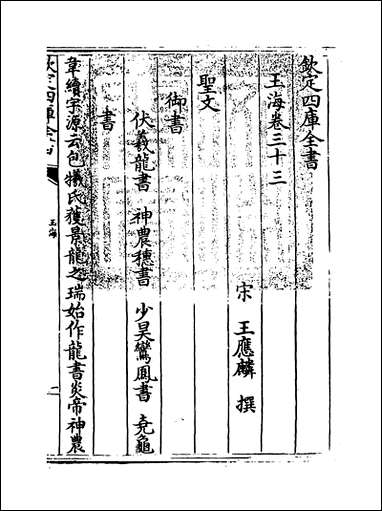 欽定四庫全書
玉海卷三十三
宋 王應麟 撰
聖文
御書
伏羲龍書 神農穗書 少昊鸞鳳書 堯龜
書
韋續字源云包犧氏獲景龍之瑞始作龍書炎帝神農
欽定四庫全書
玉海
一